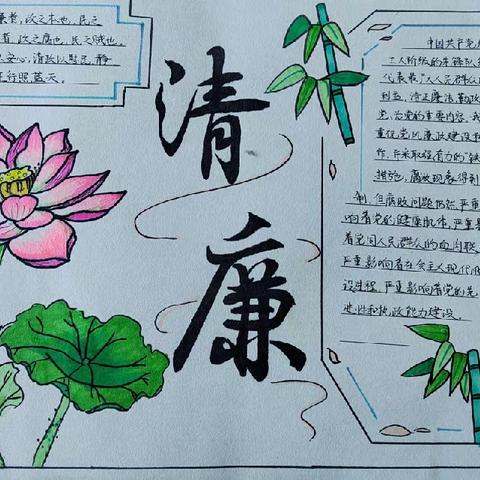 廉者，政之本也，民之
者，政之腐也，民之贼也，
安心，清政以慰民，静
行照蓝天。
清
廉
中国共产党
工人阶级的先锋队
代表最广大人民群众
利益。清正廉洁，勤政
党、治党的重要内容。我
重视党风廉政建设和
作，并采取强有力的“铁
措施，腐败现象得到
制，但腐败问题仍然严重
响着党的健康肌体，严重
着党同人民群众的血肉联
严重影响着社会主义现代
设进程，严重影响着党的先
进性和执政能力建设。